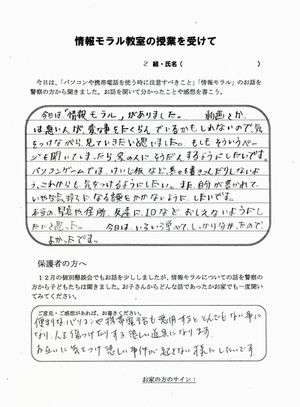 情報モラル教室の授業を受けて
2 組・氏名（ ）
今日は、「パソコンや携帯電話を使う時に注意すべきこと」「情報モラル」のお話を
警察の方から聞きました。お話を聞いて分かったことや感想を書こう。
今日は"情報モラル"がありました。 動画とか
は悪い人が、変な事をたくらんでいるかもしれないので気
をつけながら見ていきたいと思いました。もしもそういうペー
ジを開いてしまったら家の人にそうだんするようにしたいです。
パソコンゲームでは、けいじ板など
これからも気をつけるようにしたい。また、
いやな気持ちになる
自分の 住所、友達に おしえないように
たいと思った。 今日はいろいろ学べて、しっかり分かったので
よかったです。
保護者の方へ
１２月の個別懇談会でもお話を少ししましたが、情報モラルについての話を警察の
方から子どもたちは聞きました。お子さんからどんな話であったかお家でも一度聞
いてみてください。
ご意見・ご感想があれば、お書きください。
便利なパソコンや携帯電話も とんでもない事に
なり、人を傷つけたりする恐しい道具になります。
お互いに気をつけ悲しい事件が起きない様にしたいです
お家の方のサイン：